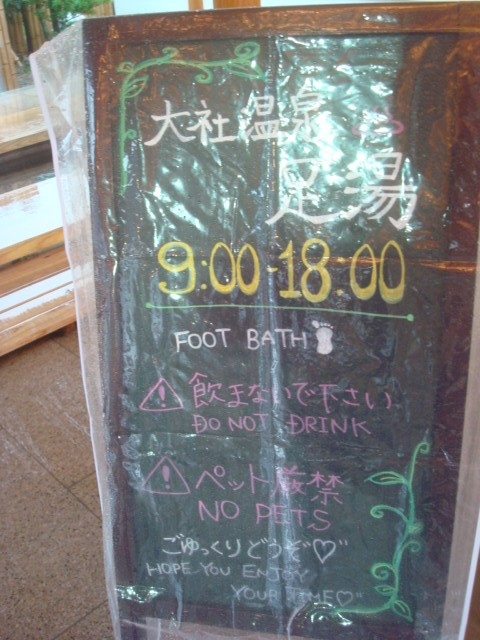 大社温泉
足湯
9:00-18:00
FOOT BATH
飲まないで下さい
DO NOT DRINK
ペット厳禁
NO PETS
ごゆっくりどうぞ♡"
HOPE YOU ENJOY
YOUR TIME♡"